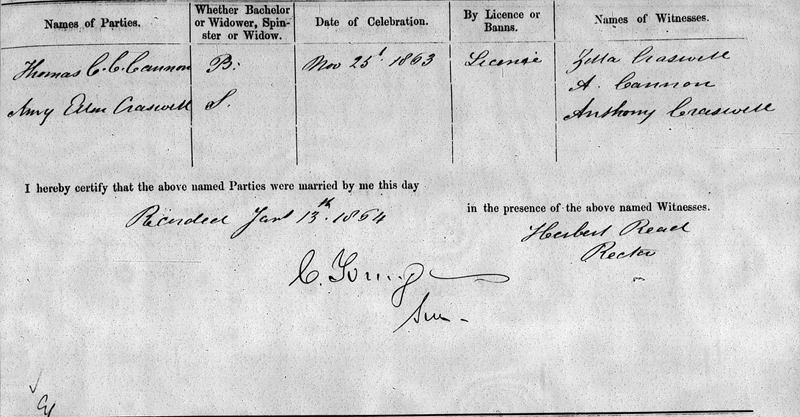 Names of Parties.
Whether Bachelor
or Widower, Spin-
ster or Widow.
Date of Celebration.
By Licence or
Banns.
Names of Witnesses.
Thomas C. C. Cannon
B.
Nov 25t 1863
License
Zilla Craswell
A. Cannon
Amy Ellen Craswell
S.
Anthony Craswell
I hereby certify that the above named Parties were married by me this day
in the presence of the above named Witnesses.
Recorded Jany 13th. 1864
Herbert Read
Rector
C. Young